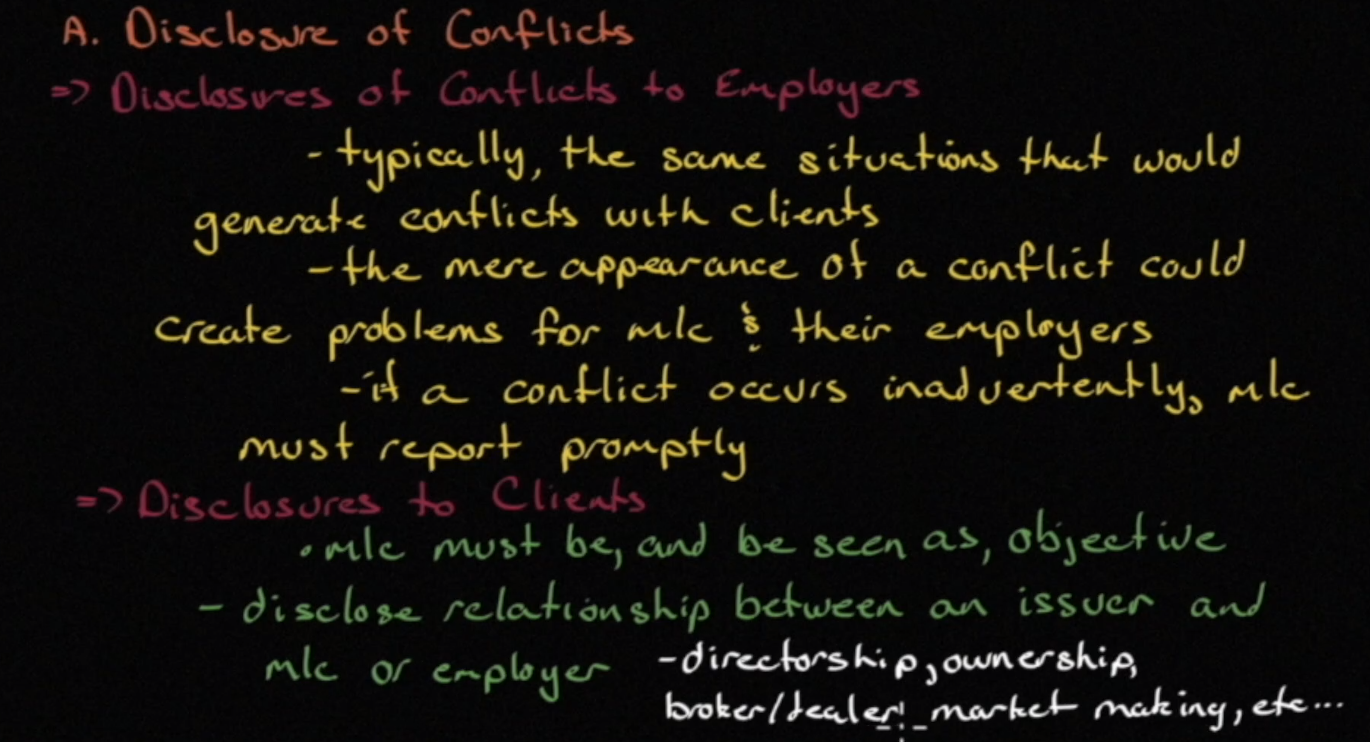 A. Disclosure of Conflicts
=> Disclosures of Conflicts to Employers
- typically, the same situations that would
generate conflicts with clients
- the mere appearance of a conflict could
create problems for m/c & their employers
- if a conflict occurs inadvertently, m/c
must report promptly
=> Disclosures to Clients
• m/c must be, and be seen as, objective
- disclose relationship between an issuer and
m/c or employer
- directorship, ownership,
broker/dealer, market making, etc...